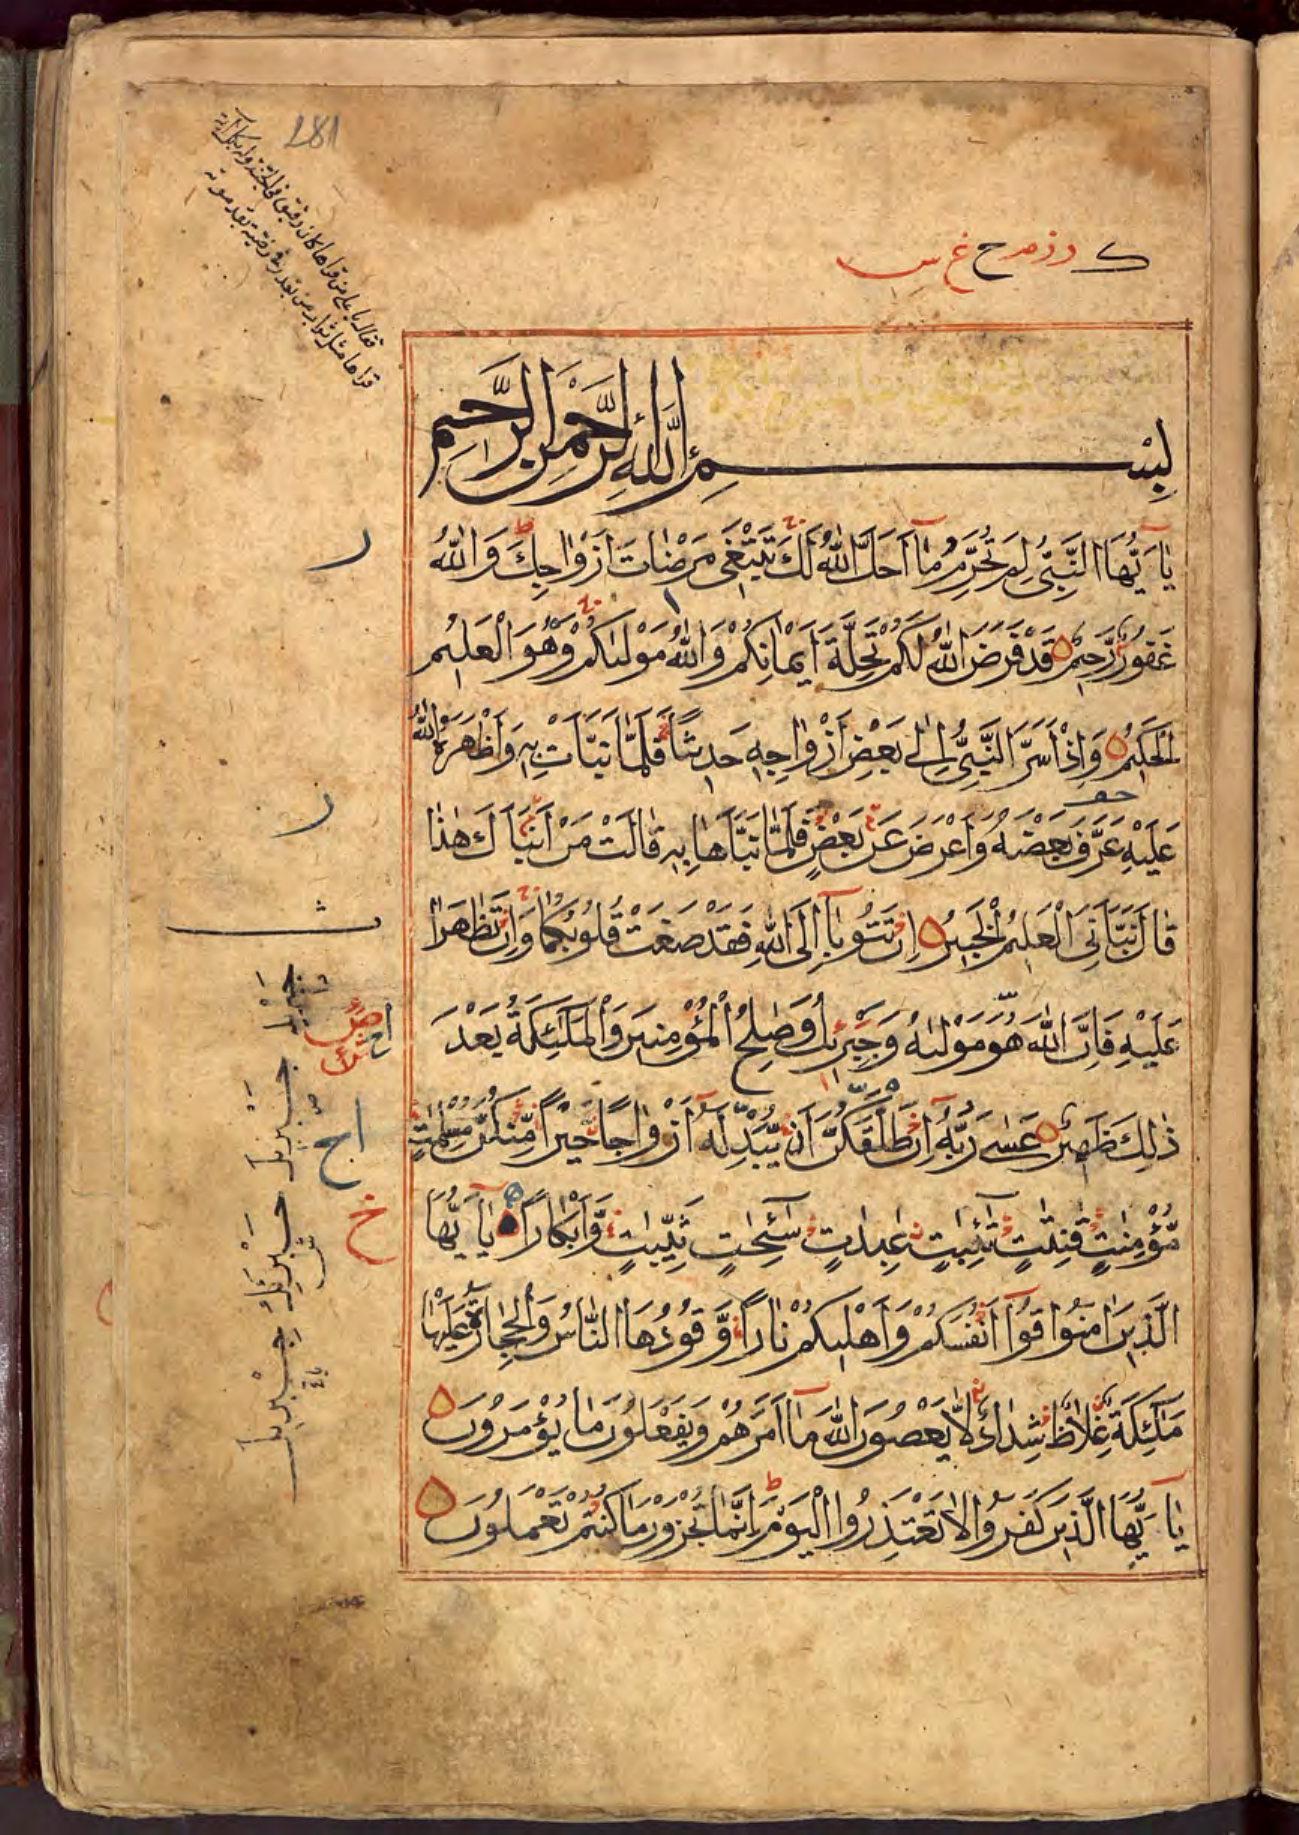 281
بِسْمِ اللَّهِ الرَّحْمٰنِ الرَّحِيمِ
يٰا اَيُّهَا النَّبِيُّ لِمَ تُحَرِّمُ مٰا اَحَلَّ اللّٰهُ لَكَ تَبْتَغِى مَرْضٰاتَ اَزْوٰاجِكَ وَاللّٰهُ
غَفُورٌ رَّحِيمٌ قَدْ فَرَضَ اللّٰهُ لَكُمْ تَحِلَّةَ اَيْمٰانِكُمْ وَاللّٰهُ مَوْلٰىكُمْ وَهُوَ الْعَلِيْمُ
الْحَكِيْمُ وَاِذْ اَسَرَّ النَّبِيُّ اِلٰى بَعْضِ اَزْوٰاجِهِ حَدِيثًا فَلَمّٰا نَبَّاَتْ بِهِ وَاَظْهَرَهُ اللّٰهُ
عَلَيْهِ عَرَّفَ بَعْضَهُ وَاَعْرَضَ عَنْ بَعْضٍ فَلَمّٰا نَبَّاَهٰا بِهِ قٰالَتْ مَنْ اَنْبَاَكَ هٰذٰا
قٰالَ نَبَّاَنِىَ الْعَلِيْمُ الْخَبِيْرُ اِنْ تَتُوبٰا اِلَى اللّٰهِ فَقَدْ صَغَتْ قُلُوبُكُمٰا وَاِنْ تَظٰاهَرٰا
عَلَيْهِ فَاِنَّ اللّٰهَ هُوَ مَوْلٰىهُ وَجِبْرِيْلُ وَصٰلِحُ الْمُؤْمِنِيْنَ وَالْمَلٰئِكَةُ بَعْدَ
ذٰلِكَ ظَهِيْرٌ عَسٰى رَبُّهُ اِنْ طَلَّقَكُنَّ اَنْ يُبْدِلَهُ اَزْوٰاجًا خَيْرًا مِّنْكُنَّ مُسْلِمٰتٍ
مُّؤْمِنٰتٍ قٰنِتٰتٍ تٰئِبٰتٍ عٰبِدٰاتٍ سٰئِحٰتٍ ثَيِّبٰتٍ وَّاَبْكٰارًا يٰا اَيُّهَا
الَّذِيْنَ اٰمَنُوا قُوا اَنْفُسَكُمْ وَاَهْلِيْكُمْ نٰارًا وَّقُودُهَا النّٰاسُ وَالْحِجٰارَةُ عَلَيْهٰا
مَلٰئِكَةٌ غِلٰاظٌ شِدٰادٌ لٰا يَعْصُونَ اللّٰهَ مٰا اَمَرَهُمْ وَيَفْعَلُونَ مٰا يُؤْمَرُونَ
يٰا اَيُّهَا الَّذِيْنَ كَفَرُوا لٰا تَعْتَذِرُوا الْيَوْمَ اِنَّمٰا تُجْزَوْنَ مٰا كُنْتُمْ تَعْمَلُونَ